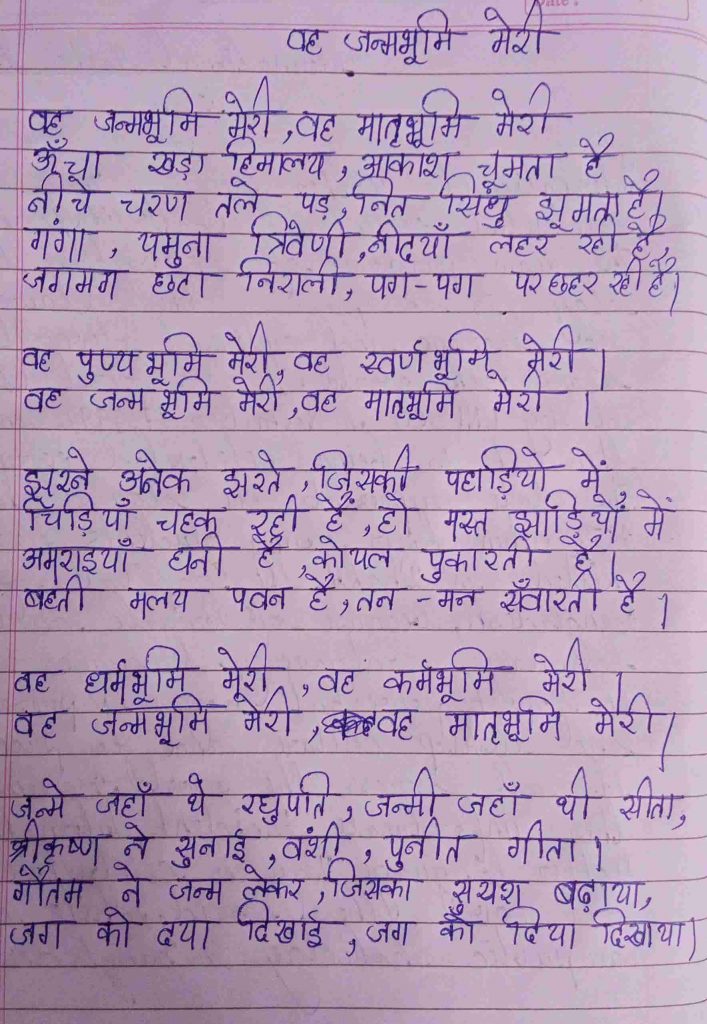 वह जन्मभूमि मेरी
वह जन्मभूमि मेरी, वह मातृभूमि मेरी
ऊँचा खड़ा हिमालय, आकाश चूमता है
नीचे चरण तले पड़, नित सिंधु झूमता है।
गंगा, यमुना त्रिवेणी, नदियाँ लहर रही है,
जगमग छटा निराली, पग-पग पर छहर रही है।
वह पुण्य भूमि मेरी, वह स्वर्ण भूमि मेरी।
वह जन्म भूमि मेरी, वह मातृभूमि मेरी।
झरने अनेक झरते, जिसकी पहाड़ियो में,
चिड़ियाँ चहक रही हैं, हो मस्त झाड़ियों में
अमराइयाँ घनी है, कोयल पुकारती है।
बहती मलय पवन है, तन-मन सँवारती है।
वह धर्मभूमि मेरी, वह कर्मभूमि मेरी।
वह जन्मभूमि मेरी, वह मातृभूमि मेरी।
जन्मे जहाँ थे रघुपति, जन्मी जहाँ थी सीता,
श्रीकृष्ण ने सुनाई, वंशी, पुनीत गीता।
गौतम ने जन्म लेकर, जिसका सुयश बढ़ाया,
जग को दया दिखाई, जग को दिया दिखाया।